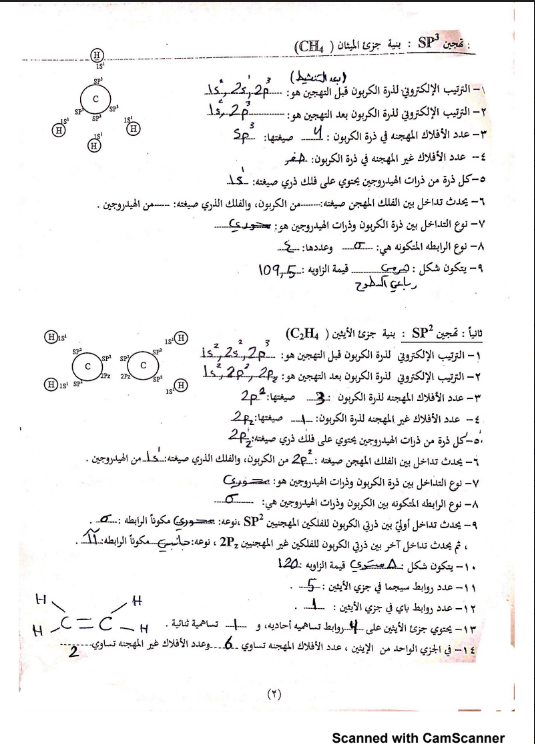 : تهجين SP³ : بنية جزئ الميثان ( CH4 )
(بعد التنشيط)
١- الترتيب الإلكتروني لذرة الكربون قبل التهجين هو: 1s², 2s¹, 2p³
٢- الترتيب الإلكتروني لذرة الكربون بعد التهجين هو: 1s², 2p³
٣- عدد الأفلاك المهجنه في ذرة الكربون : 4 صيغتها: sp³
٤- عدد الأفلاك غير المهجنه في ذرة الكربون: صفر
٥-كل ذرة من ذرات الهيدروجين يحتوي على فلك ذري صيغته: 1s¹
٦- يحدث تداخل بين الفلك المهجن صيغته: من الكربون، والفلك الذري صيغته: من الهيدروجين .
٧- نوع التداخل بين ذرة الكربون وذرات الهيدروجين هو: محوري
٨- نوع الرابطه المتكونه هي: σ وعددها: ٤
٩- يتكون شكل : هرمي قيمة الزاويه: 109,5
رباعي السطوح
H 1S¹
SP³ C SP³ SP³ SP³
1S¹ H 1S¹ H 1S¹ H
ثانياً : تهجين SP² : بنية جزئ الأيثين ( C2H4 )
١- الترتيب الإلكتروني لذرة الكربون قبل التهجين هو: 1s², 2s², 2p³
٢- الترتيب الإلكتروني لذرة الكربون بعد التهجين هو: 1s², 2p², 2pz
٣- عدد الأفلاك المهجنه لذرة الكربون : 3 صيغتها: 2p²
٤- عدد الأفلاك غير المهجنه لذرة الكربون: 1 صيغتها: 2pz
٥-كل ذرة من ذرات الهيدروجين يحتوي على فلك ذري صيغته:
٦- يحدث تداخل بين الفلك المهجن صيغته : 2p² من الكربون، والفلك الذري صيغته: 1s¹ من الهيدروجين .
٧- نوع التداخل بين ذرة الكربون وذرات الهيدروجين هو: محوري
٨- نوع الرابطه المتكونه بين الكربون وذرات الهيدروجين هي: σ
٩- يحدث تداخل أوليّ بين ذرتي الكربون للفلكين المهجنيين SP² ،نوعه: محوري مكوناً الرابطه : σ .
، ثم يحدث تداخل آخر بين ذرتي الكربون للفلكين غير المهجنيين 2Pz ، نوعه: جانبي مكوناً الرابطه: π .
١٠- يتكون شكل : مستوي قيمة الزاويه: 120
١١- عدد روابط سيجما في جزي الأيثين : 5 .
١٢- عدد روابط باي في جزي الأيثين : 1 .
١٣- يحتوي جزئ الأيثين على 4 روابط تساهميه أحاديه، و 1 تساهمية ثنائية .
١٤- في الجزي الواحد من الإيثين ، عدد الأفلاك المهجنه تساوي 6 وعدد الأفلاك غير المهجنه تساوي 2
H 1S¹ 1S¹ H
SP² C SP² SP² C SP²
H 1S¹ SP² 2Pz 2Pz SP² 1S¹ H
H H
C=C
H H
(٢)
Scanned with CamScanner